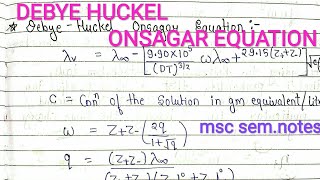 DEBYE HUCKEL
* Debye-Huckel Onsagar Equation :-
ONSAGAR EQUATION
λv = λ∞ - [9.90×10⁵/(DT)^3/2 ω λ∞ + 29.15(Z₊+Z₋)
C = Conⁿ of the solution in gm equivalent/lit
ω = Z₊Z₋ (2q/1+√q)
msc sem.notes
q = (Z₊Z₋) λ∞